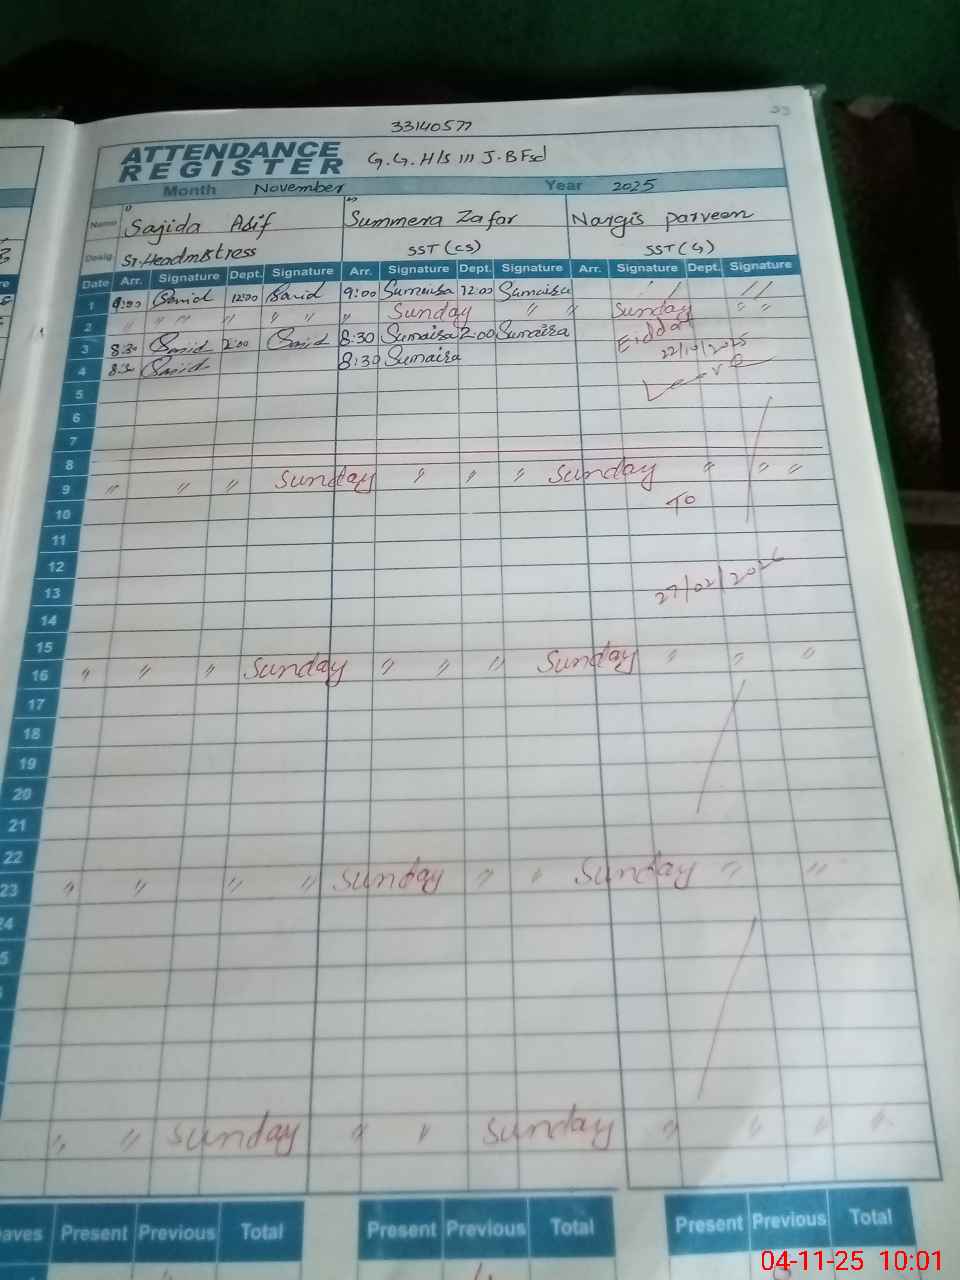 33
33140577
ATTENDANCE REGISTER G.G.H/S 111 J.B Fsd
Month November Year 2025
Name Sajida Adif Summera Zafar Nargis parveen
Desig. Sr.Headmistress SST(CS) SST(G)
Date Arr. Signature Dept. Signature Arr. Signature Dept. Signature Arr. Signature Dept. Signature
1 9:00 12:00 9:00 Sumaisa 12:00 Sumaisa
2 " " " " " " " Sunday " " Sunday " "
3 8:30 2:00 8:30 Sumaisa 2:00 Sumaisa Eiddat
22/10/2025
4 8:30 8:30 Sumaisa
Leave
5
6
7
8
9 " " " Sunday " " " Sunday " " "
10 To
11
12
13 27/02/2026
14
15
16 " " " Sunday " " " Sunday " " "
17
18
19
20
21
22
23 " " " " Sunday " " Sunday " "
24
5
" " Sunday " " Sunday " " " "
eaves Present Previous Total Present Previous Total Present Previous Total
04-11-25 10:01